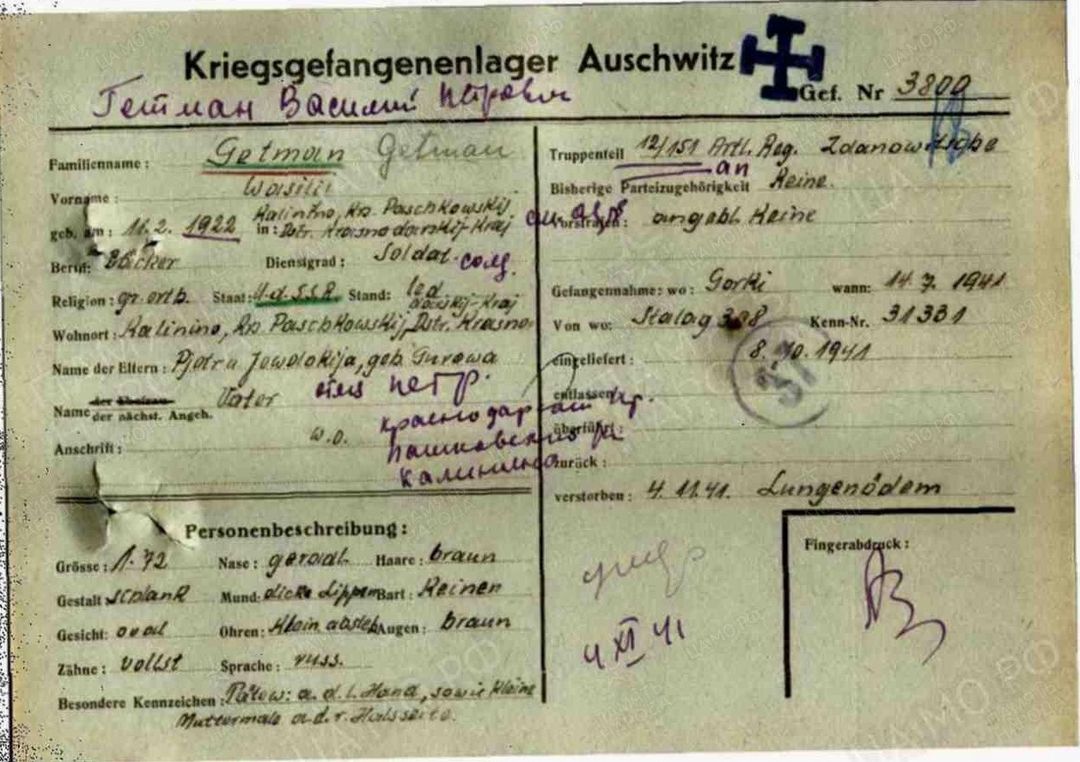 Kriegsgefangenenlager Auschwitz
Гетман Василий Петрович
Gef. Nr 3800
Familienname: Getman Getman
Vorname: Wasilii
geb. am: 11.2. 1922 in: Kalinino, Rp. Paschkowskij
Dstr. Krasnodarskij-Kraj
Beruf: Bäcker Dienstgrad: Soldat. солд.
Religion: gr. orth. Staat: U.d.S.S.R. Stand: led
Wohnort: Kalinino, Rp. Paschkowskij, Dstr. Krasno-
darskij-Kraj
Name der Eltern: Pjotra Jewdokija, geb. Gurowa
Name der Ehefrau Vater отец Петр.
der nächst. Angeh.
Anschrift: w.o. Краснодарский кр.
Пашковский
Калинино
Truppenteil 12/151 Artl. Reg.
ап
Bisherige Parteizugehörigkeit Keine.
Vorstrafen: angebl. Keine
Gefangennahme: wo: Gorki wann: 14.7. 1941
Von wo: Stalag 308 Kenn-Nr. 31331
eingeliefert: 8.10.1941
entlassen:
überführt:
zurück:
verstorben: 4.11.41. Lungenödem
Personenbeschreibung:
Grösse: 1.72 Nase: geradl. Haare: braun
Gestalt schlank Mund: dicke Lippen Bart: Keinen
Gesicht: oval Ohren: Klein absteh. Augen: braun
Zähne: vollst Sprache: russ.
Besondere Kennzeichen: Tätow: a.d.l. Hand, sowie Kleine
Muttermale a.d.r. Halsseite.
4 XI 41
Fingerabdruck:
ЦАМО РФ